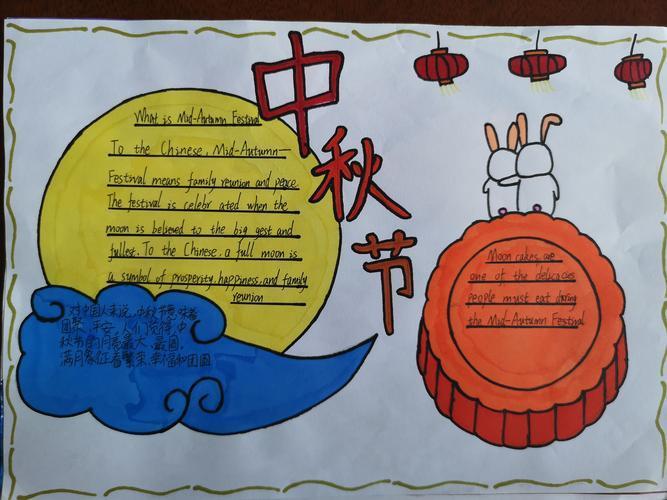 中秋节
What is Mid-Autumn Festival
To the Chinese, Mid-Autumn—
Festival means family reunion and peace.
The festival is celebr ated when the
moon is believed to the big gest and
fullest. To the Chinese, a full moon is
a symbol of prosperity, happiness, and family
reunion
对中国人来说,中秋节意味着
团聚、平安。人们觉得,中
秋节的月亮最大、最圆,
满月象征着繁荣、幸福和团圆
Moon cakes are
one of the delicacies
people must eat during
the Mid-Autumn Festival